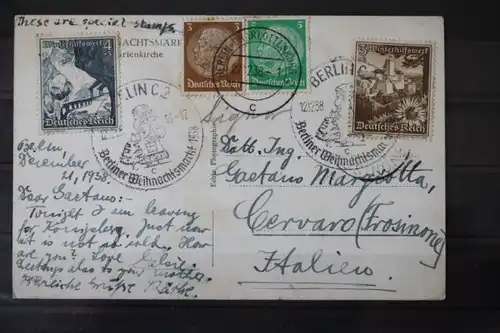 These are special stamps.
NACHTSMARK
arienkirche
Winterhilfswerk
Deutsches Reich
3
Deutsches Reich
5
Deutsches Reich
Winterhilfswerk
Deutsches Reich
BERLIN C2
Berliner Weihnachtsmarkt 1938
c
BERLIN-CHARLOTTEN
c
BERLIN
12.12.38
Berliner Weihnachtsmar
c
Signor
Berlin,
December
1938.
Dott. Ing.
Gaetano Margiotta,
Cervaro (Frosinone)
Italien
Dear Gaetano:-
Tonight I am leaving
for Königsberg. Just now
it is not so cold. How
are you? Love
Greetings also to your mother.
Herzliche Grüße Käthe.